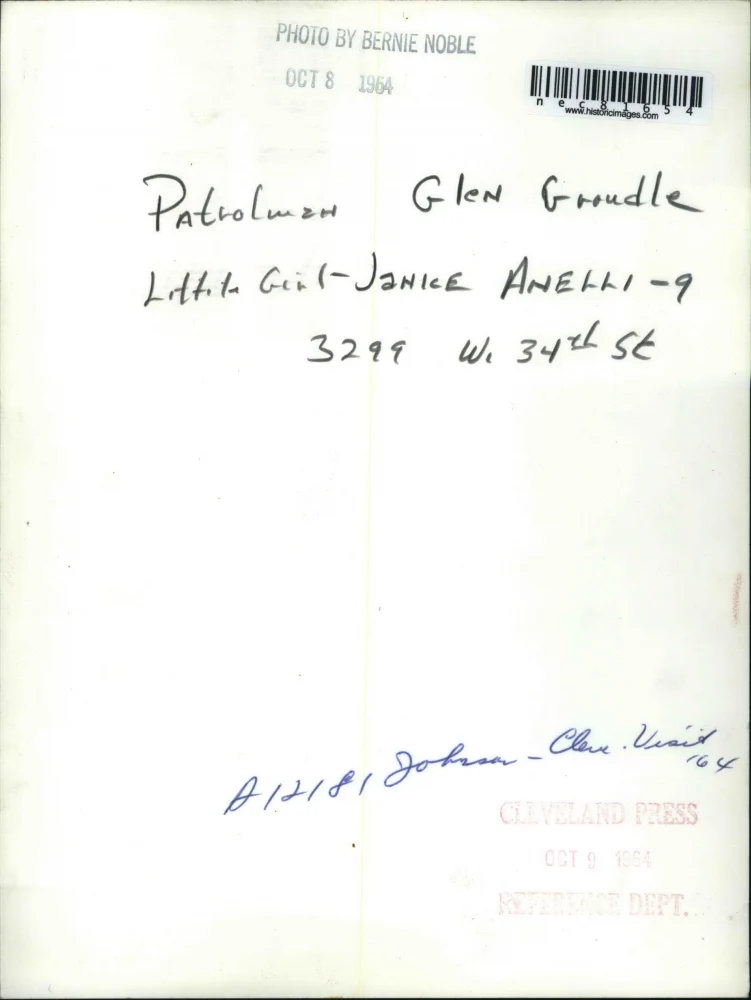 PHOTO BY BERNIE NOBLE
OCT 8 1964
nec81654
www.historicimages.com
Patrolman Glen Groudle
Little Girl - Janice Anelli - 9
3299 W. 34th St
A12181 Johnson - Cleve. Visit '64
CLEVELAND PRESS
OCT 9 1964
REFERENCE DEPT.